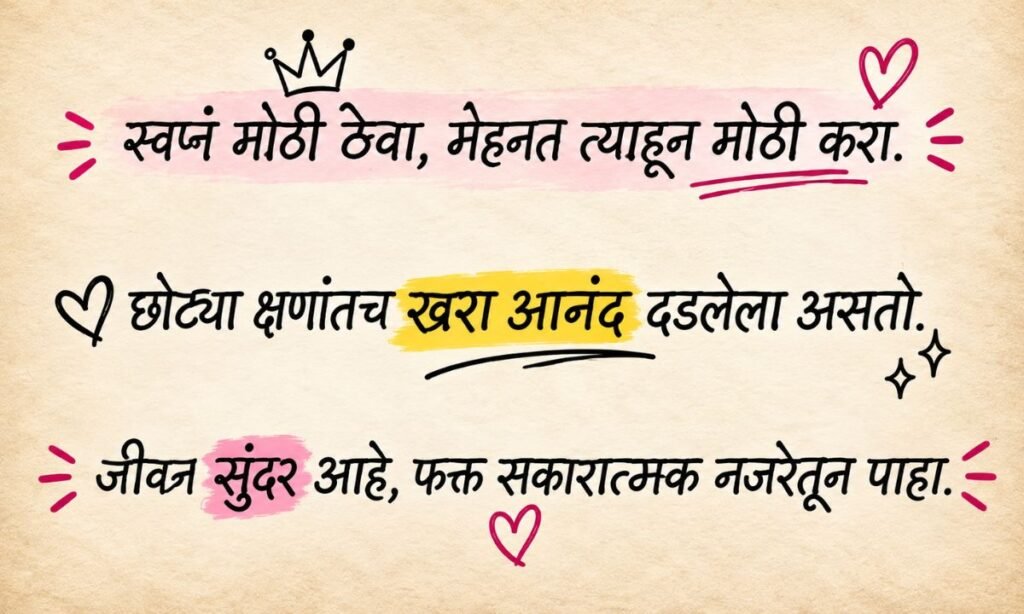 स्वप्नं मोठी ठेवा, मेहनत त्याहून मोठी करा.
छोट्या क्षणांतच खरा आनंद दडलेला असतो.
जीवन सुंदर आहे, फक्त सकारात्मक नजरेतून पाहा.